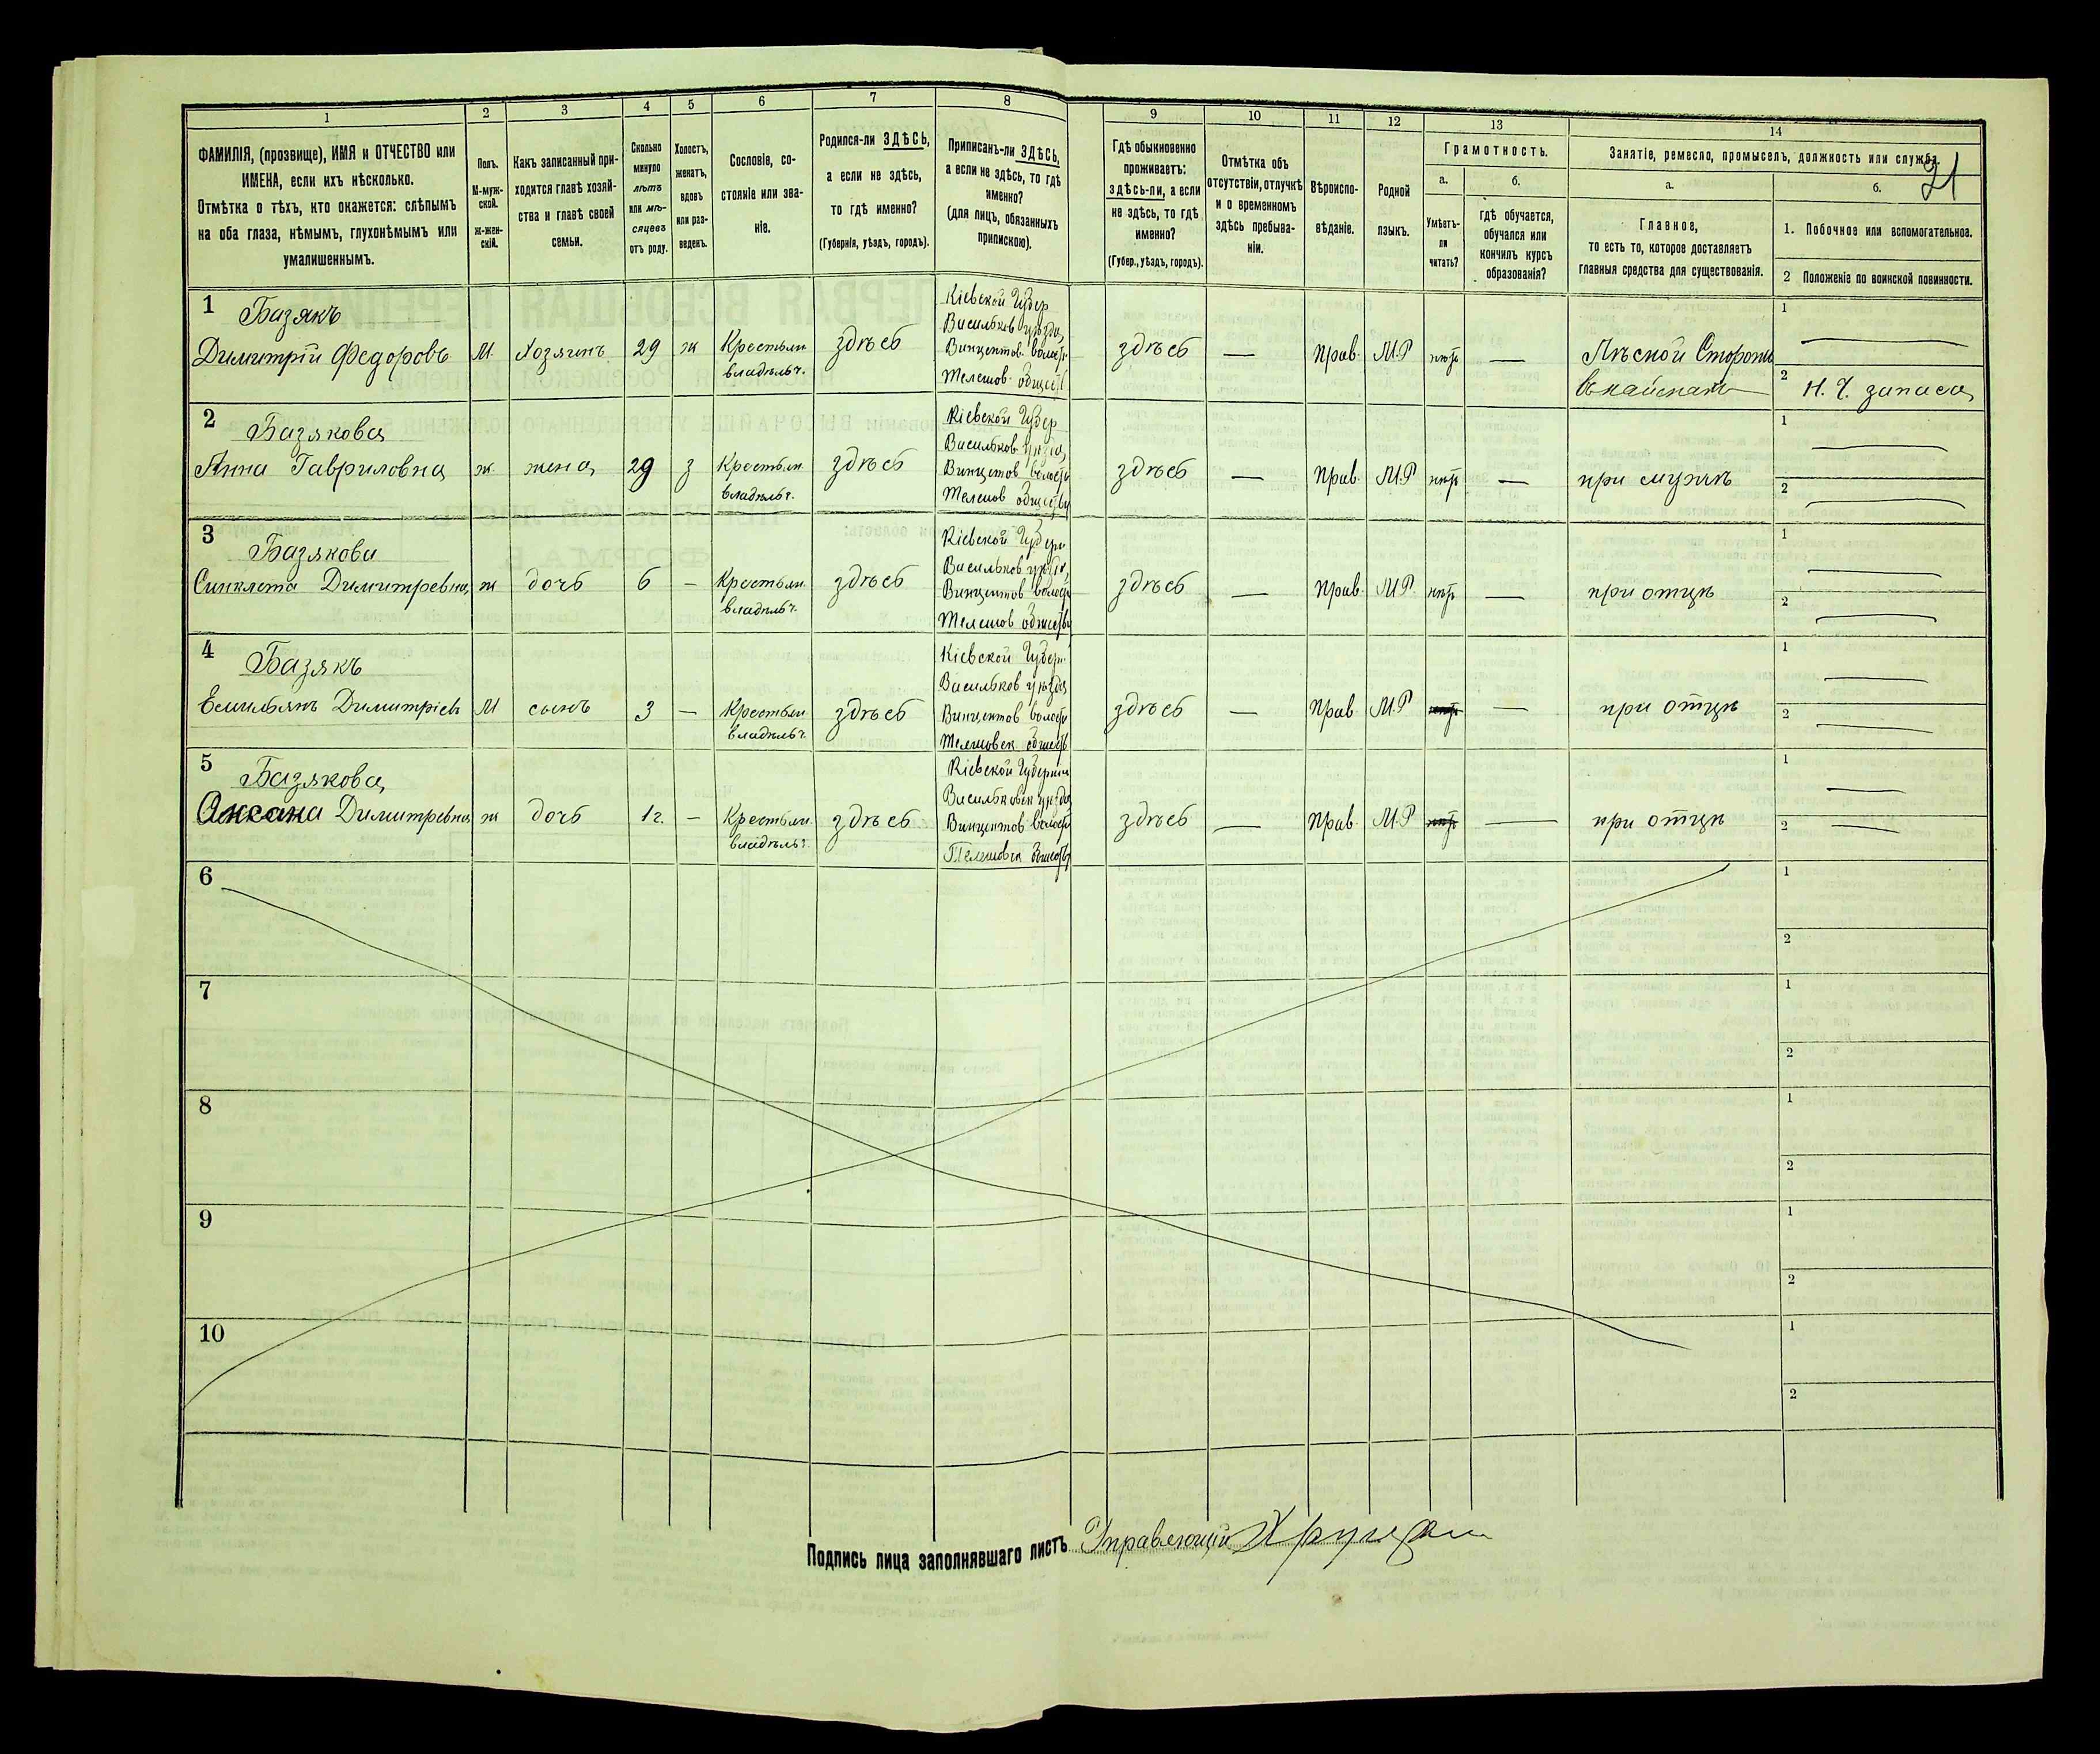 1
2
3
4
5
6
7
8
9
10
11
12
13
14
ФАМИЛІЯ, (прозвище), ИМЯ и ОТЧЕСТВО или
ИМЕНА, если ихъ нѣсколько.
Отмѣтка о тѣхъ, кто окажется: слѣпымъ
на оба глаза, нѣмымъ, глухонѣмымъ или
умалишеннымъ.
Полъ.
М-муж-
ской.
ж-жен-
скій.
Какъ записанный при-
ходится главѣ хозяй-
ства и главѣ своей
семьи.
Сколько
минуло
лѣтъ
или мѣ-
сяцевъ
отъ роду.
Холостъ,
женатъ,
вдовъ
или раз-
веденъ.
Сословіе, со-
стояніе или зва-
ніе.
Родился-ли ЗДѢСЬ,
а если не здѣсь,
то гдѣ именно?
(Губернія, уѣздъ, городъ).
Приписанъ-ли ЗДѢСЬ,
а если не здѣсь, то гдѣ
именно?
(для лицъ, обязанныхъ
припискою).
Гдѣ обыкновенно
проживаетъ:
здѣсь-ли, а если
не здѣсь, то гдѣ
именно?
(Губер., уѣздъ, городъ).
Отмѣтка объ
отсутствіи, отлучкѣ
и о временномъ
здѣсь пребыва-
ніи.
Вѣроиспо-
вѣданіе.
Родной
языкъ.
Грамотность.
а.
Умѣетъ-
ли
читать?
б.
гдѣ обучается,
обучался или
кончилъ курсъ
образованія?
Занятіе, ремесло, промыселъ, должность или служба.
21
а.
Главное,
то есть то, которое доставляетъ
главныя средства для существованія.
б.
1. Побочное или вспомогательное.
2 Положеніе по воинской повинности.
1 Базякъ
Димитрій Федоровъ
М.
Хозяинъ
29
ж
Крестьян
владѣльч.
здѣсь
Кіевской Губер
Васильков уѣзда,
Винцентов. волост
Телешов. общест
здѣсь
—
Прав.
М.Р
Лѣсной Сторож
1
2 Н. Ч. запаса
2 Базякова
Анна Гавриловна
ж
жена
29
з
Крестьян
владѣльч.
здѣсь
Кіевской Губер
Васильков уѣзда,
Винцетов волост
Телешов обществу
здѣсь
—
Прав.
М.Р
—
при мужѣ
1
2
3 Базякова
Синклета Димитревна
ж
дочь
6
—
Крестьян
владѣльч.
здѣсь
Кіевской Губерн
Васильков уѣзда,
Винцентов волост
Телешов обществу
здѣсь
—
Прав.
М.Р.
—
при отцѣ
1
2
4 Базякъ
Емильянъ Димитріев
М
сынъ
3
—
Крестьян
владѣльч.
здѣсь
Кіевской Губерн
Васильков уѣзда
Винцентов волост
Телешовск обществ
здѣсь
—
Прав
М.Р
—
при отцѣ
1
2
5 Базякова
Аксана Димитревна
ж
дочь
1 г.
—
Крестьян
владѣльч.
здѣсь
Кіевской Губерніи
Васильковск уѣзда
Винцентов волост
Телешовск обществ
здѣсь
—
Прав.
М.Р
—
при отцѣ
1
2
6
1
2
7
1
2
8
1
2
9
1
2
10
1
2
Подпись лица заполнявшаго листъ Управляющій